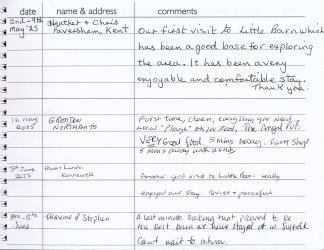 date name & address comments
2nd-9th Heather & Chris Our first visit to Little Barn which
May '25 Faversham, Kent has been a good base for exploring
the area. It has been a very
enjoyable and comfortable stay.
Thank you.
16 May GRENDON First time, clean, everything you need
2025 NORTHANTS Local "Plough" ok for food, The Angel Pub
VERY Good food. 5 mins away. Farm Shop
5 mins away
5th June
2025 Another good visit to Little Barn - really
enjoyed our stay. Quiet & peaceful
& Stephen A last minute booking that proved to be
June the best barn we have stayed at in Suffolk
Can't wait to return.